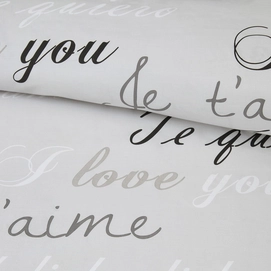 quiero
you
Je t'a
Te qu
I love you
t'aime